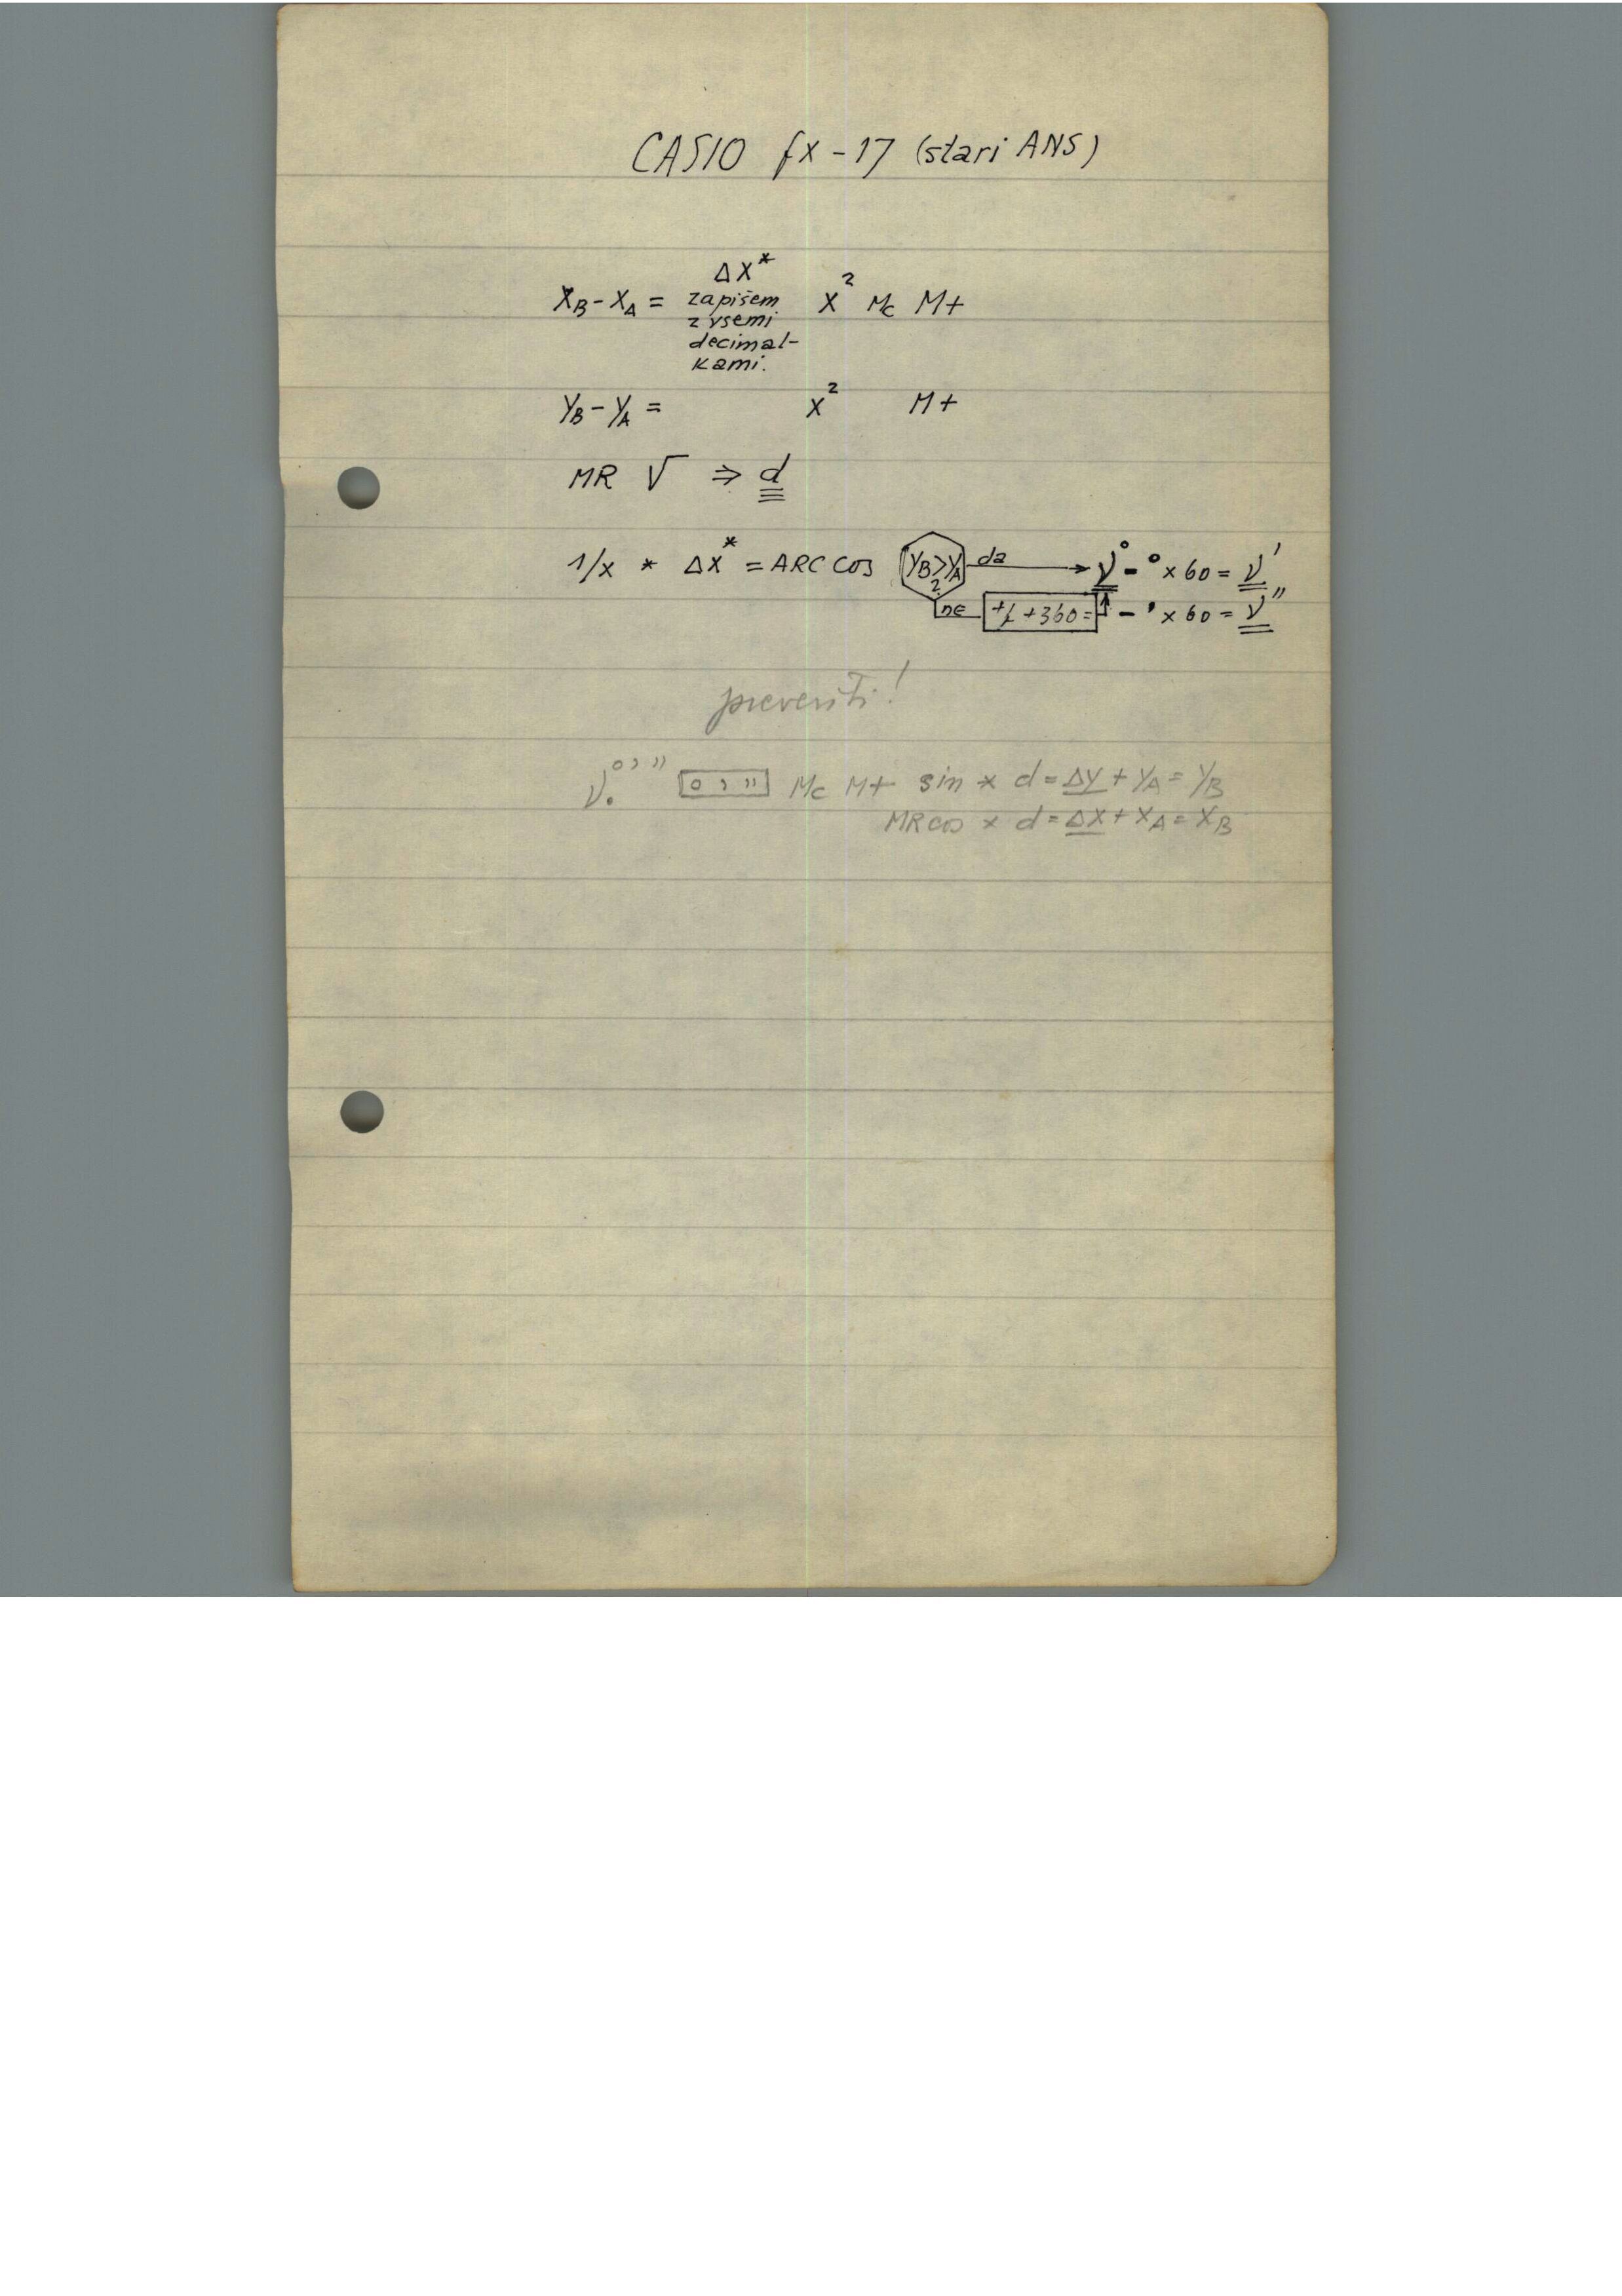 CASIO fx-17 (stari ANS)
ΔX*
X_B - X_A = zapišem X² Mc M+
z vsemi
decimal-
kami.
Y_B - Y_A = X² M+
MR √ ⇒ d
1/x * ΔX* = ARC cos Y_B>Y_A ? da → ν° - ° x 60 = ν'
ne +/- +360= ↑ - ' x 60 = ν"
preveriti!
ν°'" °'" Mc M+ sin * d = ΔY + Y_A = Y_B
MR cos * d = ΔX + X_A = X_B